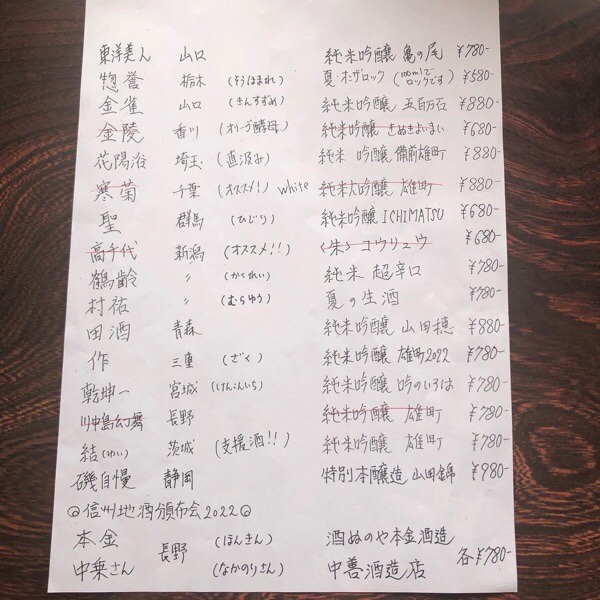 東洋美人 山口 純米吟醸 亀の尾 ¥780-
惣誉 栃木 (そうほまれ) 夏・ホンザロック (100mlでロックです) ¥580-
金雀 山口 (きんすずめ) 純米吟醸 五百万石 ¥880-
金陵 香川 (オリーブ酵母) 純米吟醸 さぬきよいまい ¥680-
花陽浴 埼玉 (直汲み) 純米 吟醸 備前雄町 ¥880-
寒菊 千葉 (オススメ!) white 純米大吟醸 雄町 ¥880-
聖 群馬 (ひじり) 純米吟醸 ICHIMATSU ¥680-
高千代 新潟 (オススメ!!) <朱> コウリュウ ¥680-
鶴齢 〃 (かくれい) 純米 超辛口 ¥780-
村祐 〃 (むらゆう) 夏の生酒 ¥780-
田酒 青森 純米吟醸 山田穂 ¥880-
作 三重 (ざく) 純米吟醸 雄町2022 ¥780-
乾坤一 宮城 (けんこんいち) 純米吟醸 吟のいろは ¥780-
川中島幻舞 長野 純米吟醸 雄町 ¥780-
結(ゆい) 茨城 (支援酒!!) 純米吟醸 雄町 ¥780-
磯自慢 静岡 特別本醸造 山田錦 ¥980-
◎信州地酒頒布会2022◎
本金 長野 (ほんきん) 酒ぬのや本金酒造 各¥780-
中乗さん (なかのりさん) 中善酒造店